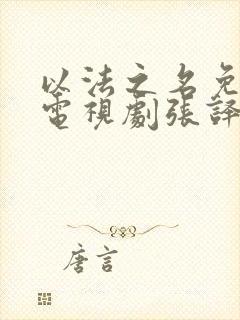 以法之名免
電視劇張譯
唐言